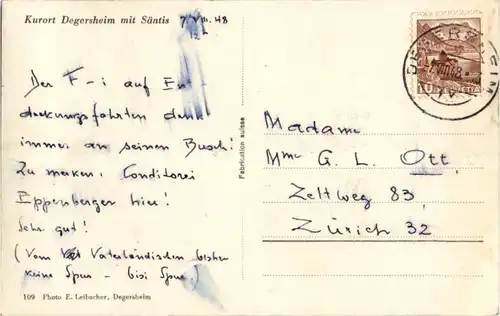 Kurort Degersheim mit Säntis
7. VIII. 48
Der F-i auf Ent-
deckungsfahrten denkt
immer an seinen
Zu merken: Conditorei
Eppenberger hier!
Sehr gut!
(Vom Vaterländischen bisher
keine Spur - bisi Spur.)
109 Photo E. Leibacher, Degersheim
Fabrication suisse
DEGERSHEIM
10 HELVETIA
Madame
Mme G. L. Ott
Zeltweg 83
Zürich 32